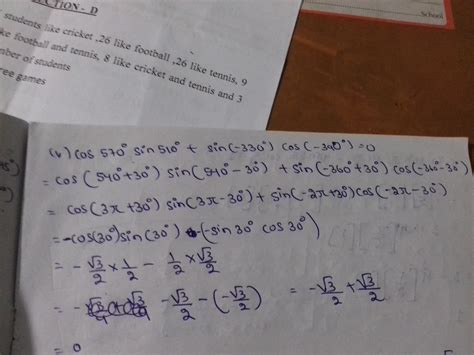 CTION - D
School
students like cricket ,26 like football ,26 like tennis, 9
ke football and tennis, 8 like cricket and tennis and 3
mber of students
ree games
(v) cos 570° sin 510° + sin(-330°) cos(-390°) = 0
= cos(540°+30°) sin(540°-30°) + sin(-360°+30°) cos(-360°-30°)
= cos(3π+30°) sin(3π-30°) + sin(-2π+30°) cos(-2π-30°)
= -cos(30°) sin(30°) -(-sin 30° cos 30°)
= -√3/2 × 1/2 - 1/2 × √3/2
= - -√3/2 - (-√3/2) = -√3/2 + √3/2
= 0